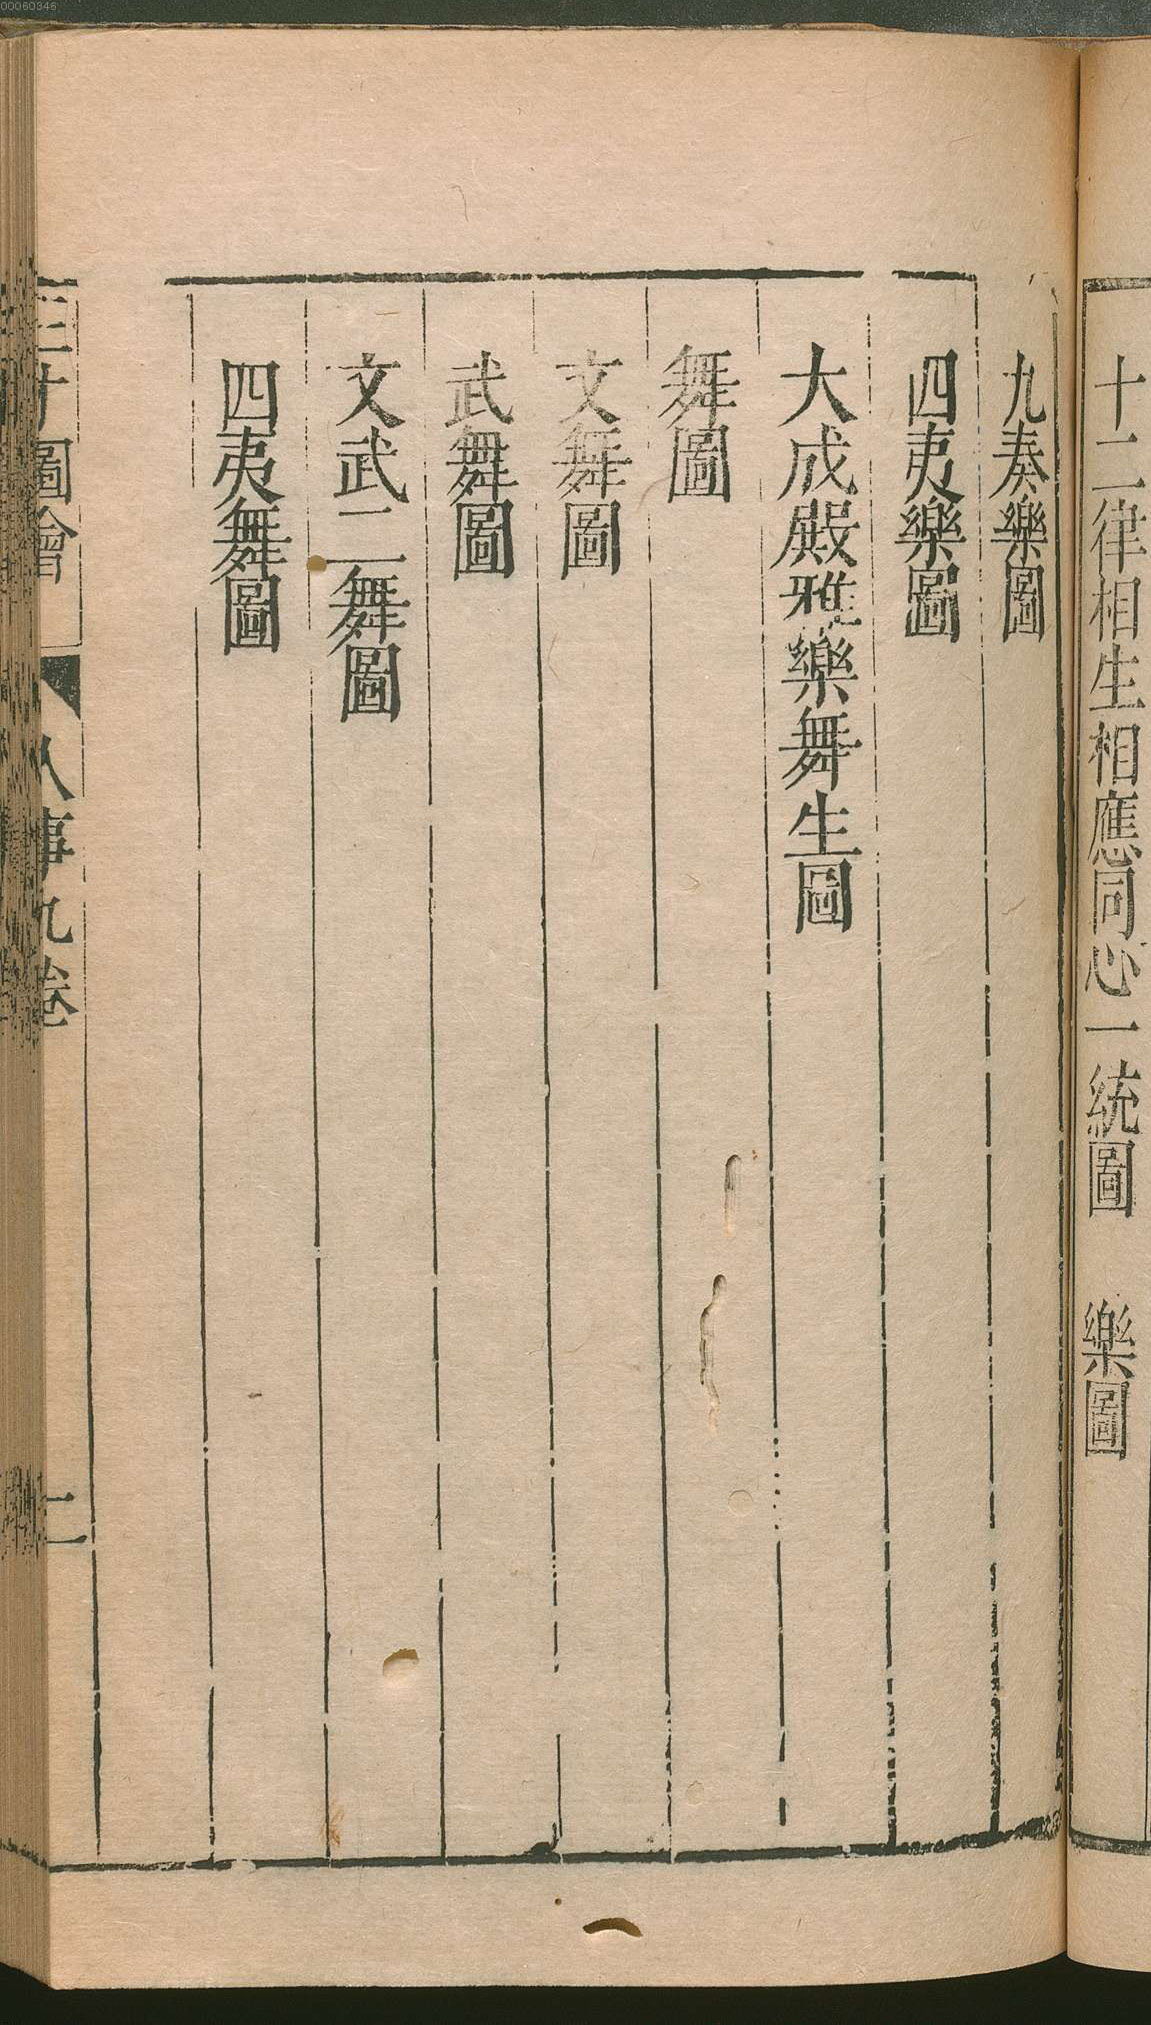 00060346
十二律相生相應同心一統圖　樂圖
九奏樂圖
四夷樂圖
大成殿雅樂舞生圖
舞圖
文舞圖
武舞圖
文武二舞圖
四夷舞圖
三才圖會　人事九卷　二